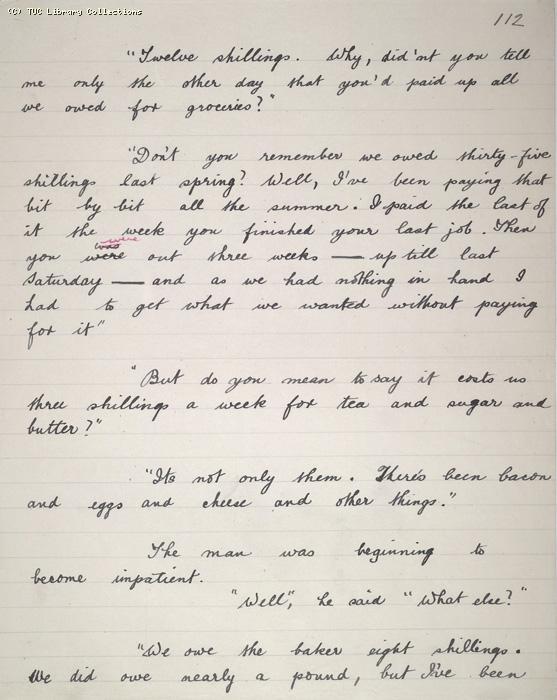 (C) TUC Library Collections
112
"Twelve shillings. Why, did'nt you tell
me only the other day that you'd paid up all
we owed for groceries?"
"Don't you remember we owed thirty-five
shillings last spring? Well, I've been paying that
bit by bit all the summer. I paid the last of
it the week you finished your last job. Then
were
was
you were out three weeks — up till last
Saturday — and as we had nothing in hand I
had to get what we wanted without paying
for it"
"But do you mean to say it costs us
three shillings a week for tea and sugar and
butter?"
"Its not only them. There's been bacon
and eggs and cheese and other things."
The man was beginning to
become impatient.
"Well", he said "What else?"
"We owe the baker eight shillings.
We did owe nearly a pound, but I've been